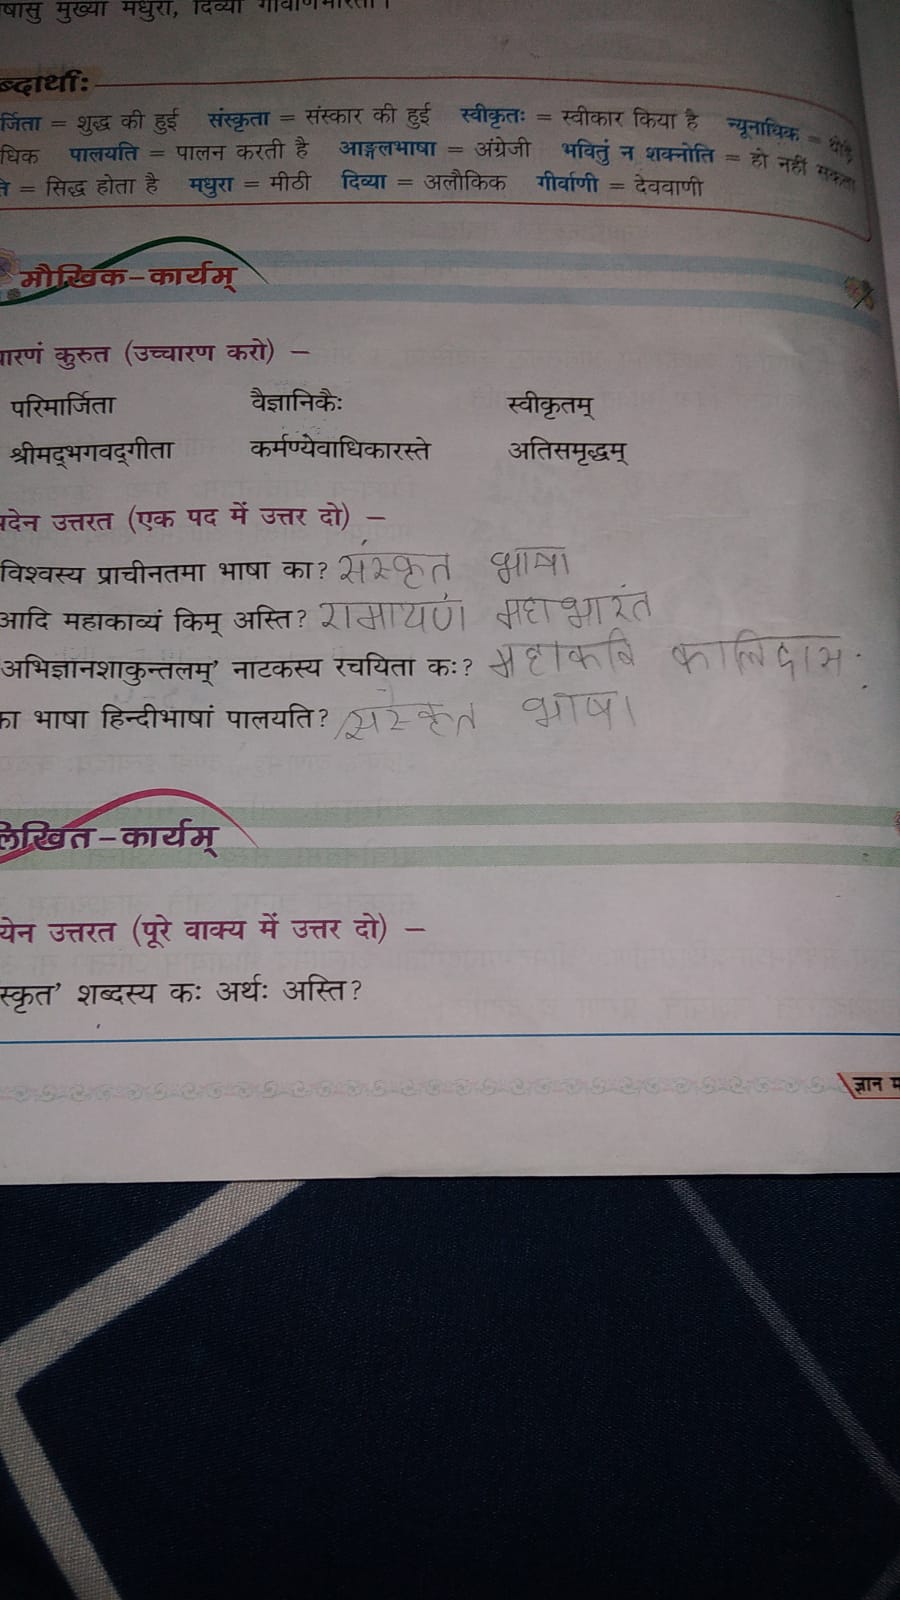 षासु मुख्या मधुरा, दिव्या गीर्वाणभारती।
ब्दार्थाः
र्जिता = शुद्ध की हुई संस्कृता = संस्कार की हुई स्वीकृतः = स्वीकार किया है न्यूनाधिक =
धिक पालयति = पालन करती है आङ्गलभाषा = अंग्रेजी भवितुं न शक्नोति = हो नहीं सकता
ते = सिद्ध होता है मधुरा = मीठी दिव्या = अलौकिक गीर्वाणी = देववाणी
मौखिक-कार्यम्
चारणं कुरुत (उच्चारण करो) –
परिमार्जिता वैज्ञानिकैः स्वीकृतम्
श्रीमद्भगवद्गीता कर्मण्येवाधिकारस्ते अतिसमृद्धम्
पदेन उत्तरत (एक पद में उत्तर दो) –
विश्वस्य प्राचीनतमा भाषा का? संस्कृत भाषा
आदि महाकाव्यं किम् अस्ति? रामायणं महाभारतं
अभिज्ञानशाकुन्तलम्' नाटकस्य रचयिता कः? महाकवि कालिदास
का भाषा हिन्दीभाषां पालयति? संस्कृत भाषा
लिखित-कार्यम्
येन उत्तरत (पूरे वाक्य में उत्तर दो) –
स्कृत' शब्दस्य कः अर्थः अस्ति?
ज्ञान म